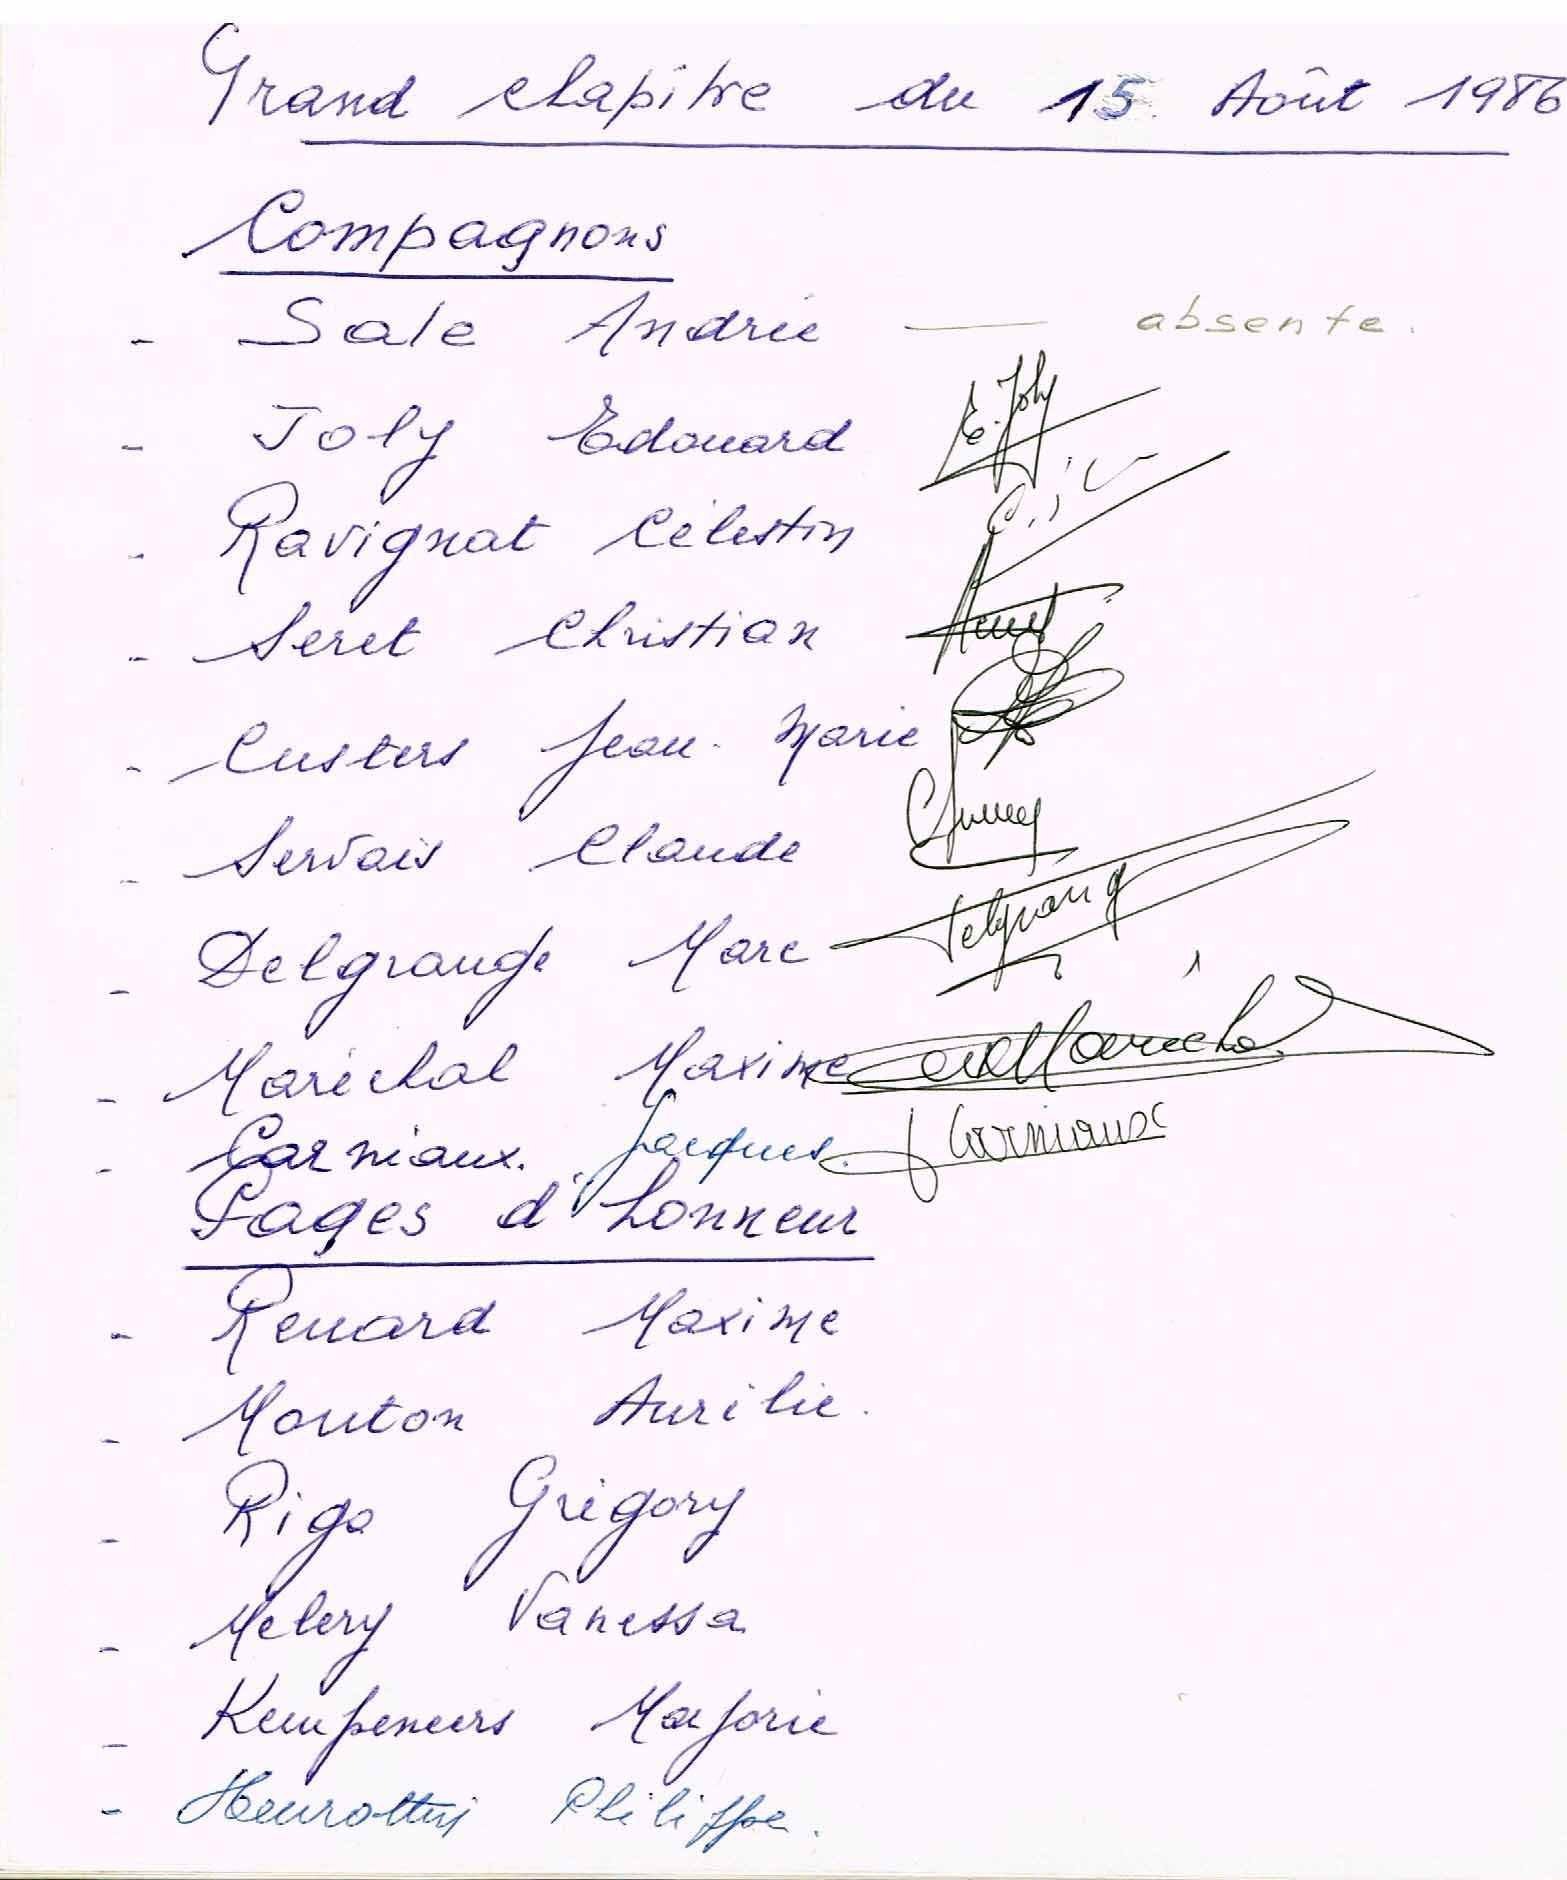 Grand chapitre du 15 Août 1986
Compagnons
- Sale Andrée — absente.
- Joly Edouard E. Joly
- Ravignat Célestin
- Seret Christian
- Custers Jean-Marie
- Servais Claude
- Delgrange Marc Delgrange
- Maréchal Maxime Maréchal
- Carniaux Jacques. J Carniaux
Pages d'honneur
- Renard Maxime
- Mouton Aurélie.
- Rigo Grégory
- Melery Vanessa
- Kempeneers Marjorie
- Philippe.